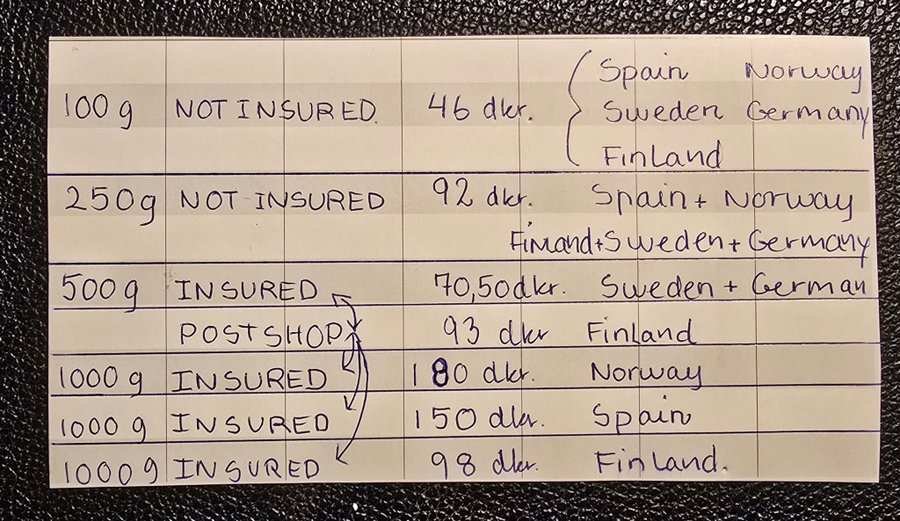 Spain Norway
100g NOT INSURED. 46 dkr. Sweden Germany
Finland
250g NOT INSURED 92 dkr. Spain + Norway
Finland+Sweden+Germany
500g INSURED 70,50dkr. Sweden + German
POSTSHOP 93 dkr Finland
1000g INSURED 180 dkr. Norway
1000g INSURED 150 dkr. Spain
1000g INSURED 98 dkr. Finland.